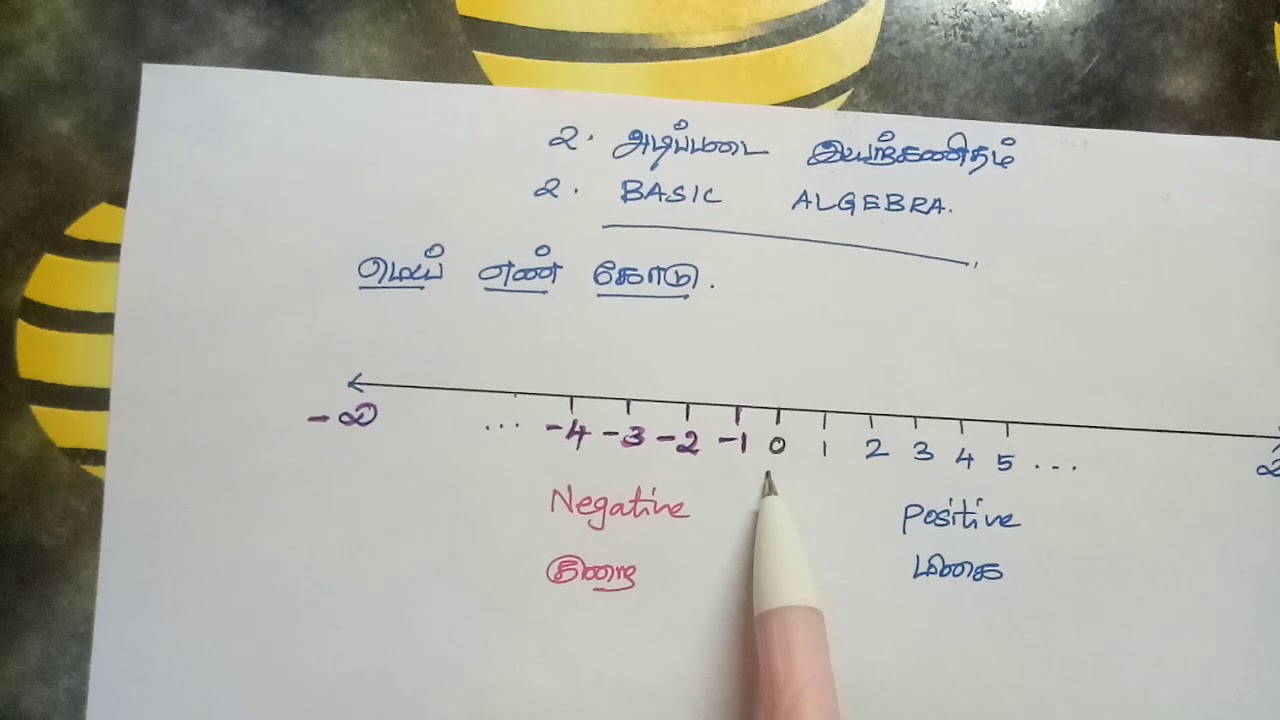 2. அடிப்படை இயற்கணிதம்
2. BASIC ALGEBRA.
மெய் எண் கோடு.
-∞ ... -4 -3 -2 -1 0 1 2 3 4 5 ...
Negative Positive
குறை மிகை